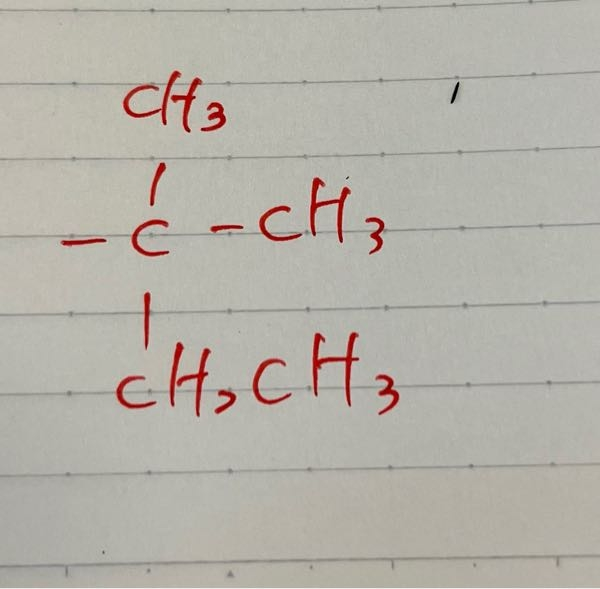 CH3
|
- C - CH3
|
CH2CH3